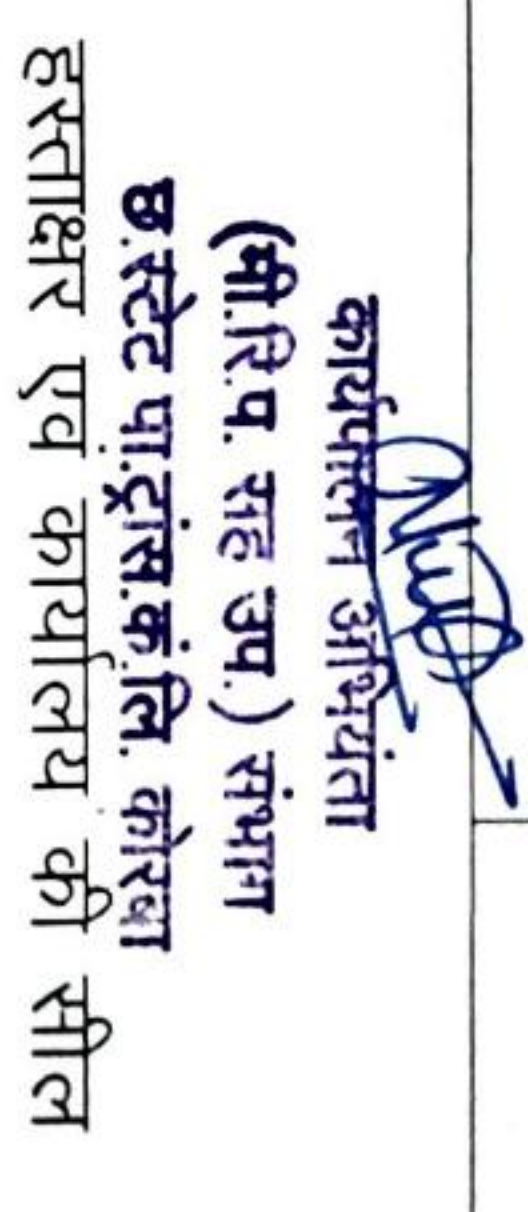 कार्यपालन अभियंता
(मी.रि.प. सह उप.) संभाग
छ.स्टेट पा.ट्रांस.कं.लि. कोरबा
हस्ताक्षर एवं कार्यालय की सील